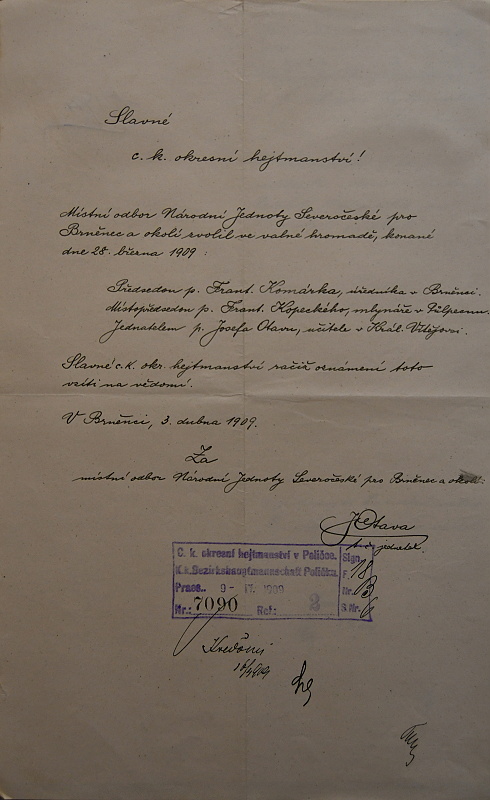 Slavné
c. k. okresní hejtmanství!
Místní odbor Národní Jednoty Severočeské pro
Brněnec a okolí zvolil ve valné hromadě, konané
dne 28. března 1909:
Předsedou p. Frant. Komárka, úředníka v Brněnci.
Místopředsedou p. Frant. Kopeckého, mlynáře v Půlpecnu.
Jednatelem p. Josefa Otavu, učitele v Král.
Slavné c. k. okr. hejtmanství račiž oznámení toto
vzíti na vědomí.
V Brněnci, 3. dubna 1909.
Za
místní odbor Národní Jednoty Severočeské pro Brněnec a okolí:
JOtava
jednatel.
C. k. okresní hejtmanství v Poličce.
K. k. Bezirkshauptmannschaft Polička.
Praes.: 9- IV. 1909
Nr.: 7090 Ref: 2
Sign.
F. 18
Nr. B
S. Nr. 6